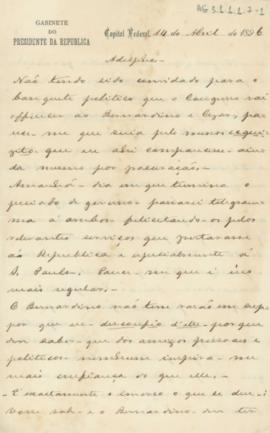 AG 3.1.1.1.2-1
GABINETE
DO
PRESIDENTE DA REPUBLICA
Capital Federal, 14 de Abril de 1896
Não tendo sido convidado para o
banquete politico que o Congresso vai
offerecer ao Bernardino e Cezar, pa-
rece-me que seria pelo menos exqui-
zito, que eu ahi comparecesse ain-
da mesmo por procuração.
Amanhã - dia em que termina o
periodo de governo passarei telegram-
ma á ambos felicitando-os pelos
relevantes serviços que prestaram
ao Republica e especialmente á
S. Paulo. Parece-me que é isso
mais regular.
O Bernardino não tem rasão em sup-
por que eu desconfio d'elle, porque
deve saber que dos amigos pessoaes e
politicos nenhum inspira-me
mais confiança do que elle.
É exactamente o
o Bernardino deve ter